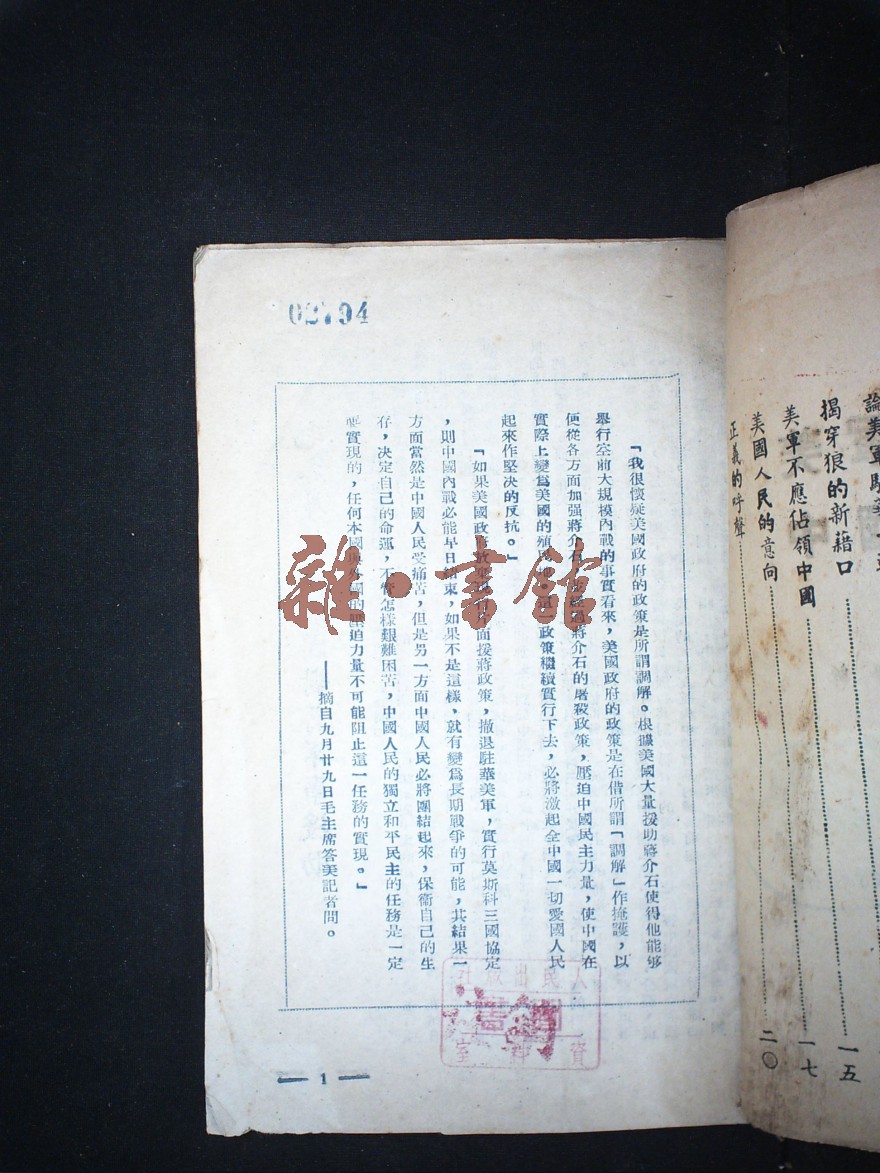 02794
「我很懷疑美國政府的政策是所謂調解。根據美國大量援助蔣介石使得他能够
舉行空前大規模內戰的事實看來，美國政府的政策是在借所謂「調解」作掩護，以
便從各方面加强蔣介石，並經過蔣介石的屠殺政策，壓迫中國民主力量，使中國在
實際上變爲美國的殖民地，這一政策繼續實行下去，必將激起全中國一切愛國人民
起來作堅決的反抗。」
「如果美國政府放棄現行片面援蔣政策，撤退駐華美軍，實行莫斯科三國協定
，則中國內戰必能早日結束，如果不是這樣，就有變爲長期戰爭的可能，其結果一
方面當然是中國人民受痛苦，但是另一方面中國人民必將團結起來，保衞自己的生
存，決定自己的命運，不管怎樣艱難困苦，中國人民的獨立和平民主的任務是一定
要實現的，任何本國與外國的壓迫力量不可能阻止這一任務的實現。」
——摘自九月廿九日毛主席答美記者問。
— 1 —
雜·書館
論美軍駐華
揭穿狼的新藉口 一五
美軍不應佔領中國 一七
美國人民的意向 二〇
正義的呼聲